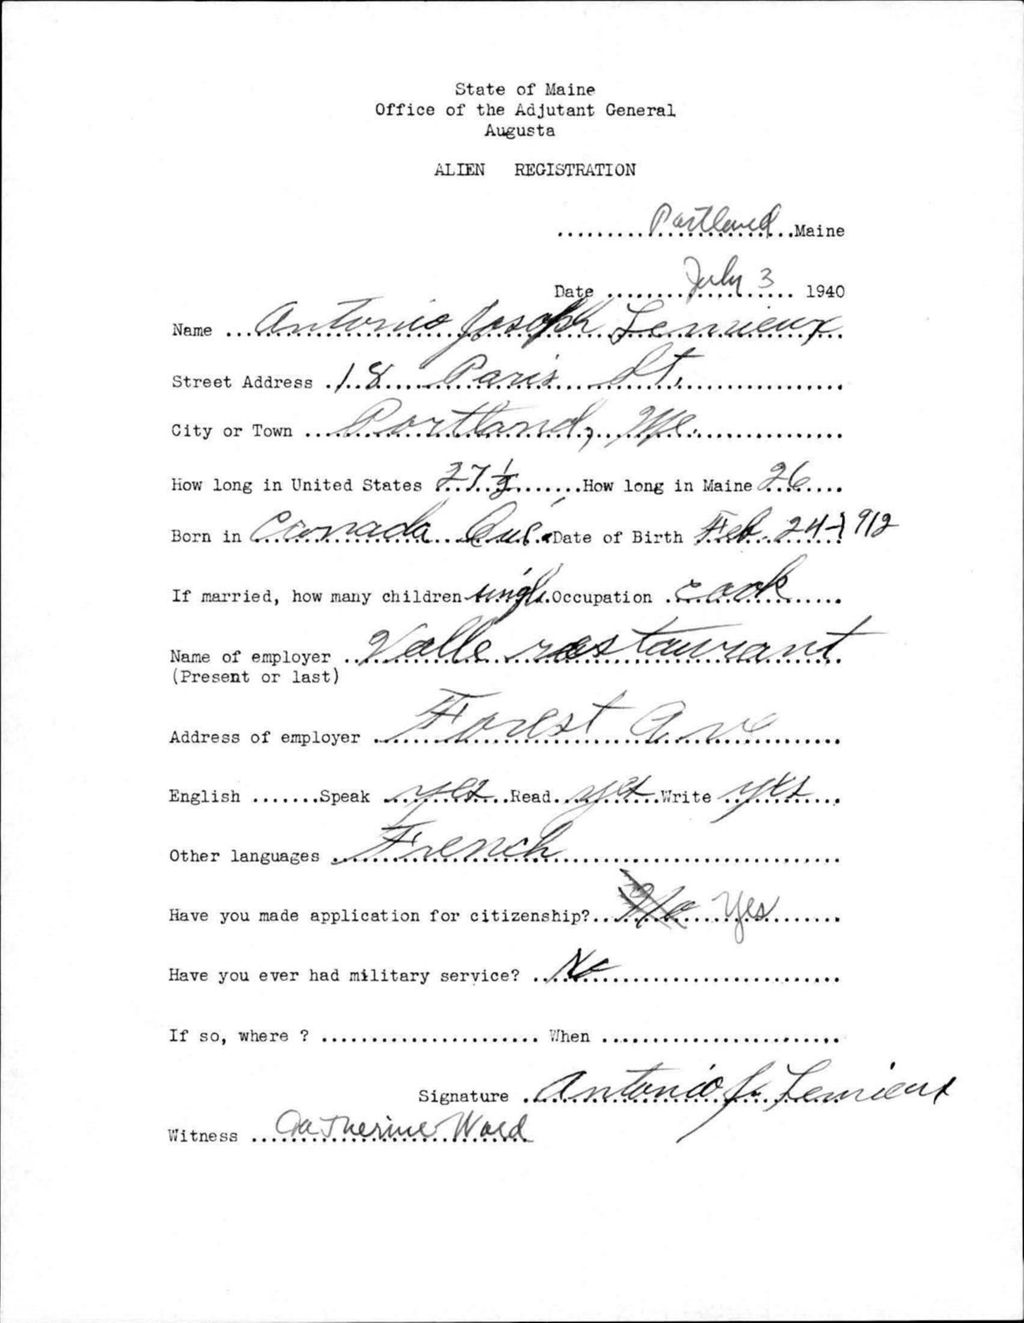 State of Maine
Office of the Adjutant General
Augusta
ALIEN REGISTRATION
Portland Maine
Date July 3 1940
Name Antonio Joseph Lemieux
Street Address 18 Paris St.
City or Town Portland, Me.
How long in United States 27 1/2 How long in Maine 26
Born in Canada Que. Date of Birth Feb. 24-1912
If married, how many children single Occupation cook
Name of employer Valle restaurant
(Present or last)
Address of employer Forest Ave
English Speak yes Read yes Write yes
Other languages French
Have you made application for citizenship? No Yes
Have you ever had military service? No
If so, where ? When
Signature Antonio J. Lemieux
Witness Catherine Ward